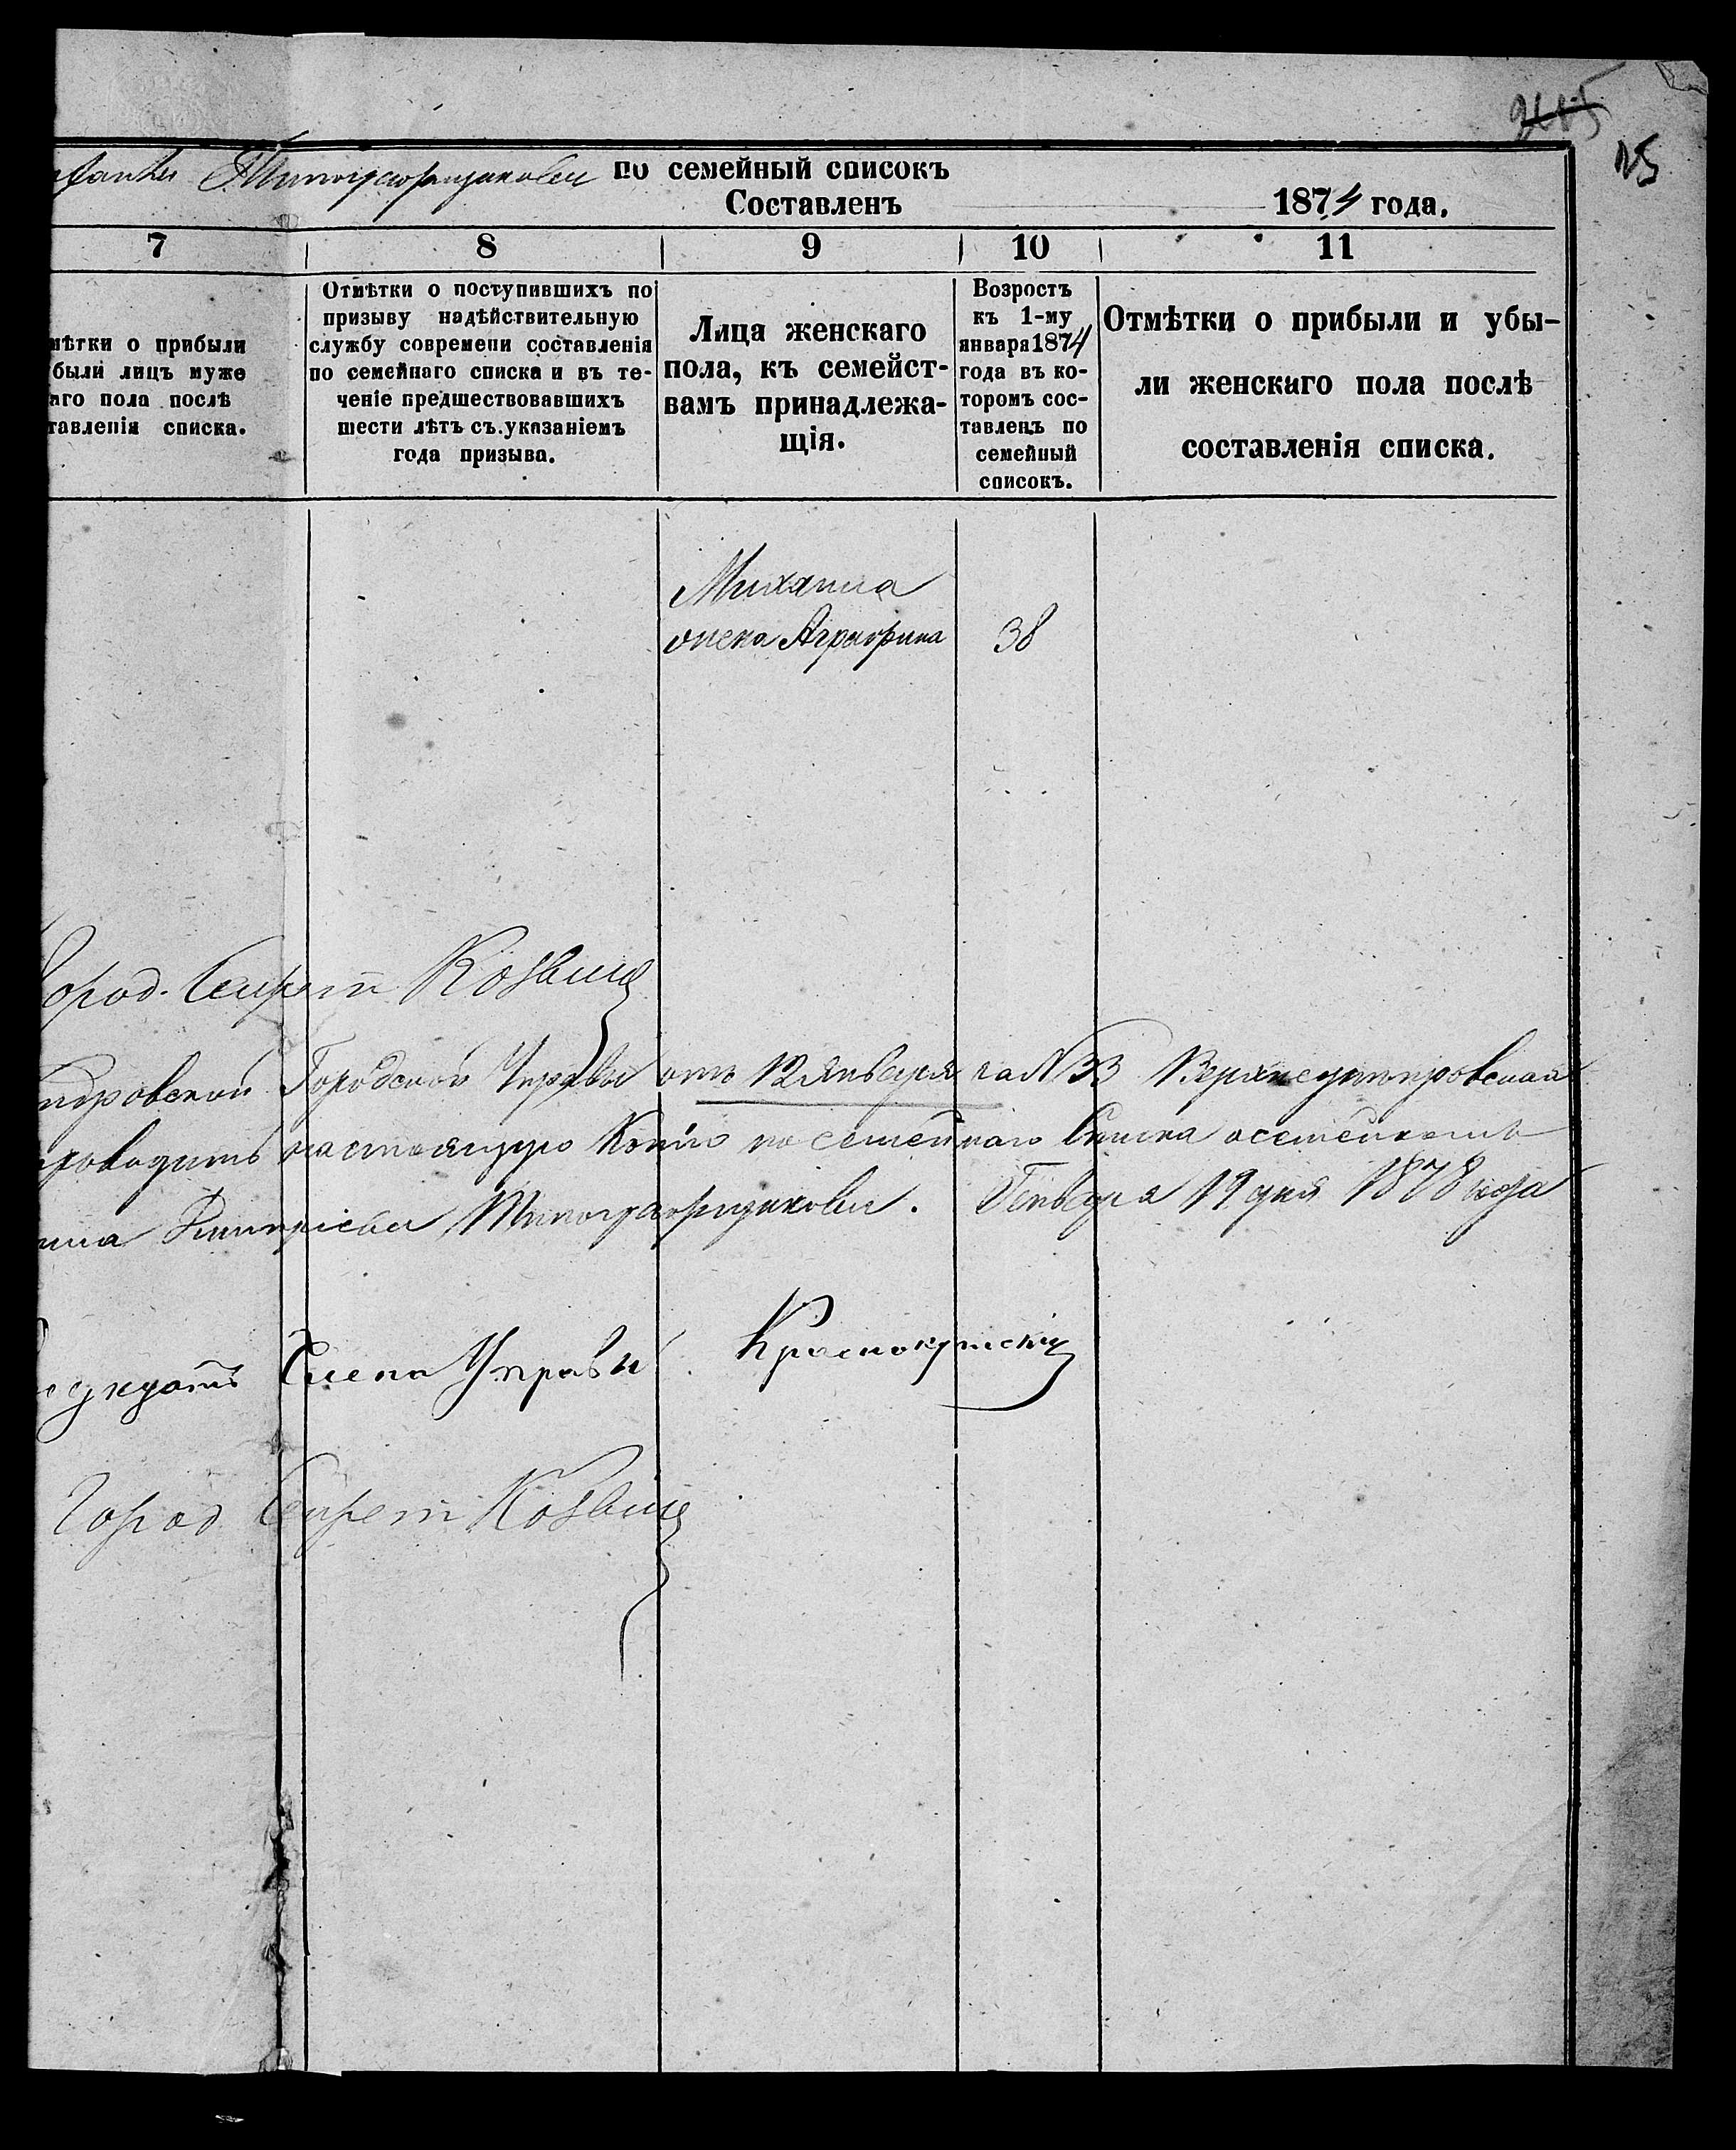 25
по семейный списокъ
Составленъ 1874 года.
7 8 9 10 11
мѣтки о прибыли
были лицъ муже
аго пола послѣ
тавленія списка.
Отмѣтки о поступившихъ по
призыву надѣйствительную
службу современи составленія
по семейнаго списка и въ те-
ченіе предшествовавшихъ
шести лѣтъ съ указаніемъ
года призыва.
Лица женскаго
пола, къ семейст-
вамъ принадлежа-
щія.
Возростъ
къ 1-му
января 1874
года въ ко-
торомъ сос-
тавленъ по
семейный
списокъ.
Отмѣтки о прибыли и убы-
ли женскаго пола послѣ
составленія списка.
Михаила
жена Аграфина 38
ород. Секрет
ндровской Городской Управы отъ 12 Января за N 33 Верхнеднѣпровская
настоящую Копію по семейнаго Списка
Января 19 дня 1878 года
Члена Управы Краснокутскій
Город Секрет